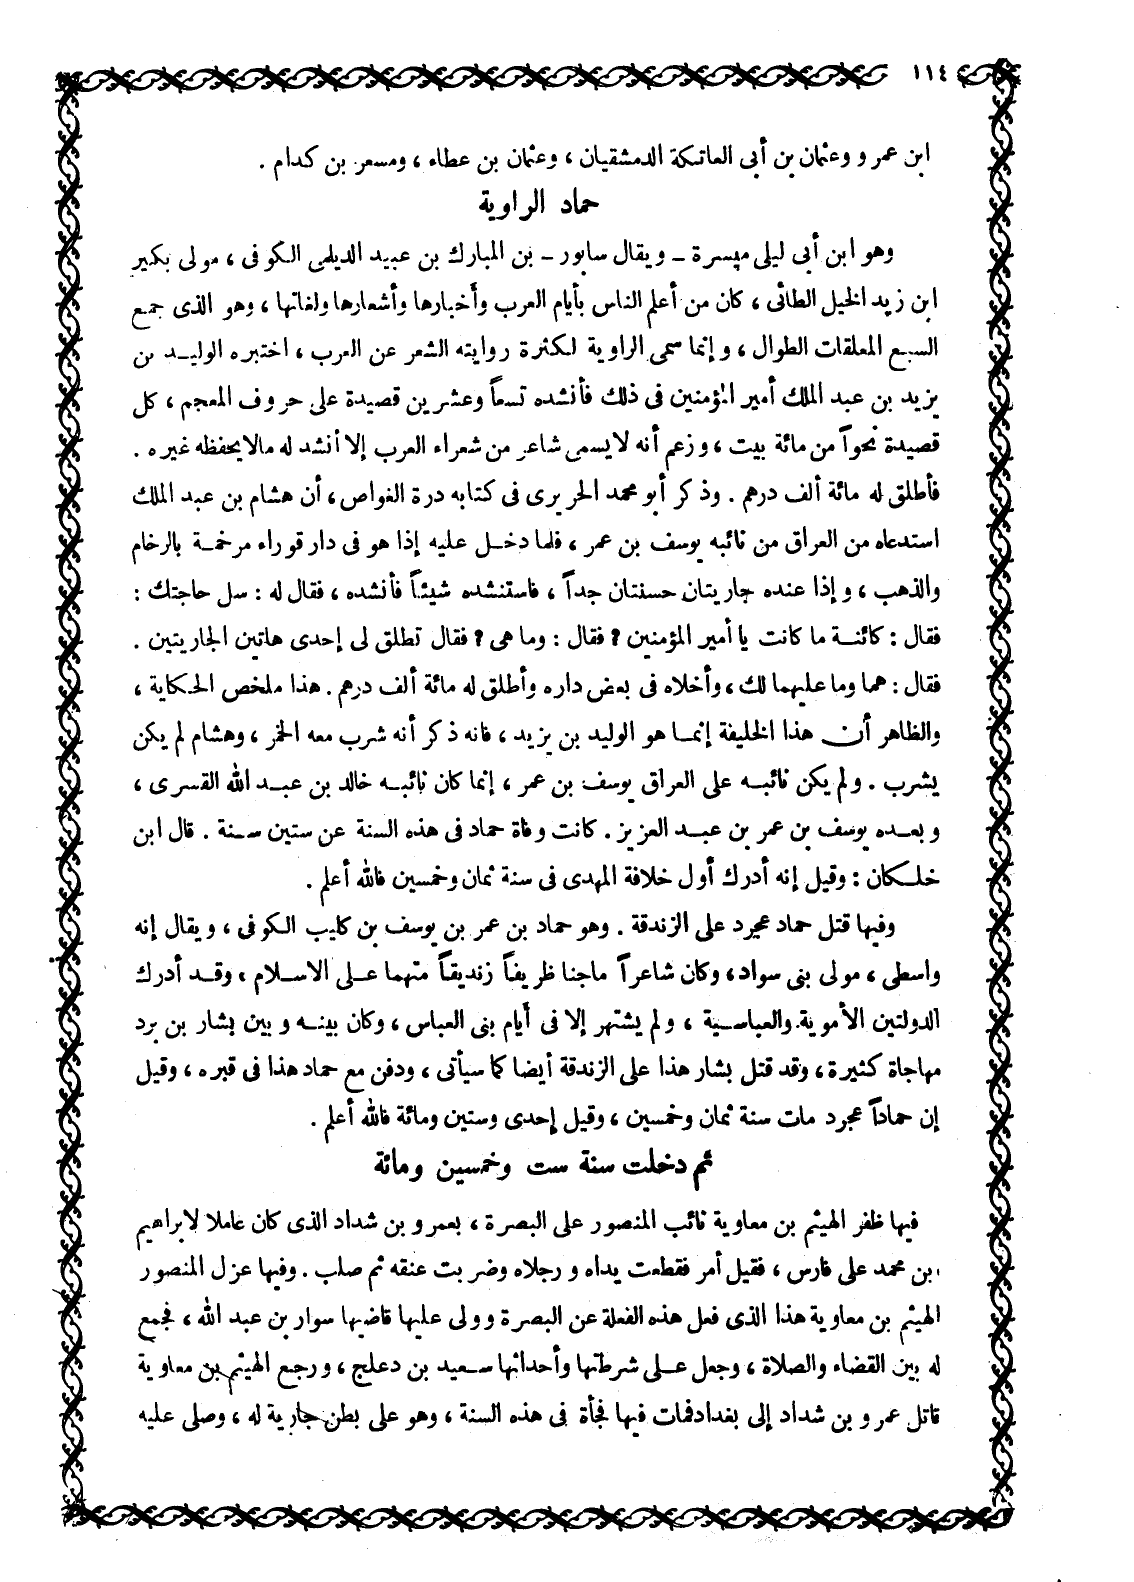 ١١٤
ابن عمرو وعثمان بن أبى العاتكة الدمشقيان ، وعثمان بن عطاء ، ومسعر بن كدام .
حماد الراوية
وهو ابن أبى ليلى ميسرة ـ ويقال سابور ـ بن المبارك بن عبيد الديلمى الكوفى ، مولى بكير
ابن زيد الخيل الطائى ، كان من أعلم الناس بأيام العرب وأخبارها وأشعارها ولغاتها ، وهو الذى جمع
السبع المعلقات الطوال ، وإنما سمى الراوية لكثرة روايته الشعر عن العرب ، اختبره الوليد بن
يزيد بن عبد الملك أمير المؤمنين فى ذلك فأنشده تسعاً وعشرين قصيدة على حروف المعجم ، كل
قصيدة نحواً من مائة بيت ، وزعم أنه لا يسمى شاعر من شعراء العرب إلا أنشد له مالا يحفظه غيره .
فأطلق له مائة ألف درهم . وذكر أبو محمد الحريرى فى كتابه درة الغواص ، أن هشام بن عبد الملك
استدعاه من العراق من نائبه يوسف بن عمر ، فلما دخل عليه إذا هو فى دار قوراء مرخمة بالرخام
والذهب ، وإذا عنده جاريتان حسنتان جداً ، فاستنشده شيئاً فأنشده ، فقال له : سل حاجتك :
فقال : كائنة ما كانت يا أمير المؤمنين ؟ فقال : وما هى ؟ فقال تطلق لى إحدى هاتين الجاريتين .
فقال : هما وما عليهما لك ، وأخلاه فى بعض داره وأطلق له مائة ألف درهم . هذا ملخص الحكاية ،
والظاهر أن هذا الخليفة إنما هو الوليد بن يزيد ، فانه ذكر أنه شرب معه الخمر ، وهشام لم يكن
يشرب . ولم يكن نائبه على العراق يوسف بن عمر ، إنما كان نائبه خالد بن عبد الله القسرى ،
وبعده يوسف بن عمر بن عبد العزيز . كانت وفاة حماد فى هذه السنة عن ستين سنة . قال ابن
خلكان : وقيل إنه أدرك أول خلافة المهدى فى سنة ثمان وخمسين فالله أعلم .
وفيها قتل حماد عجرد على الزندقة . وهو حماد بن عمر بن يوسف بن كليب الكوفى ، ويقال إنه
واسطى ، مولى بنى سواد ، وكان شاعراً ماجنا ظريفاً زنديقاً متهما على الاسلام ، وقد أدرك
الدولتين الأموية والعباسية ، ولم يشتهر إلا فى أيام بنى العباس ، وكان بينه وبين بشار بن برد
مهاجاة كثيرة ، وقد قتل بشار هذا على الزندقة أيضا كما سيأتى ، ودفن مع حماد هذا فى قبره ، وقيل
إن حماداً عجرد مات سنة ثمان وخمسين ، وقيل إحدى وستين ومائة فالله أعلم .
ثم دخلت سنة ست وخمسين ومائة
فيها ظفر الهيثم بن معاوية نائب المنصور على البصرة ، بعمرو بن شداد الذى كان عاملا لابراهيم
ابن محمد على فارس ، فقيل أمر فقطعت يداه ورجلاه وضربت عنقه ثم صلب . وفيها عزل المنصور
الهيثم بن معاوية هذا الذى فعل هذه الفعلة عن البصرة وولى عليها قاضيها سوار بن عبد الله ، فجمع
له بين القضاء والصلاة ، وجعل على شرطتها وأحداثها سعيد بن دعلج ، ورجع الهيثم بن معاوية
قاتل عمرو بن شداد إلى بغداد فمات فيها فجأة فى هذه السنة ، وهو على بطن جارية له ، وصلى عليه